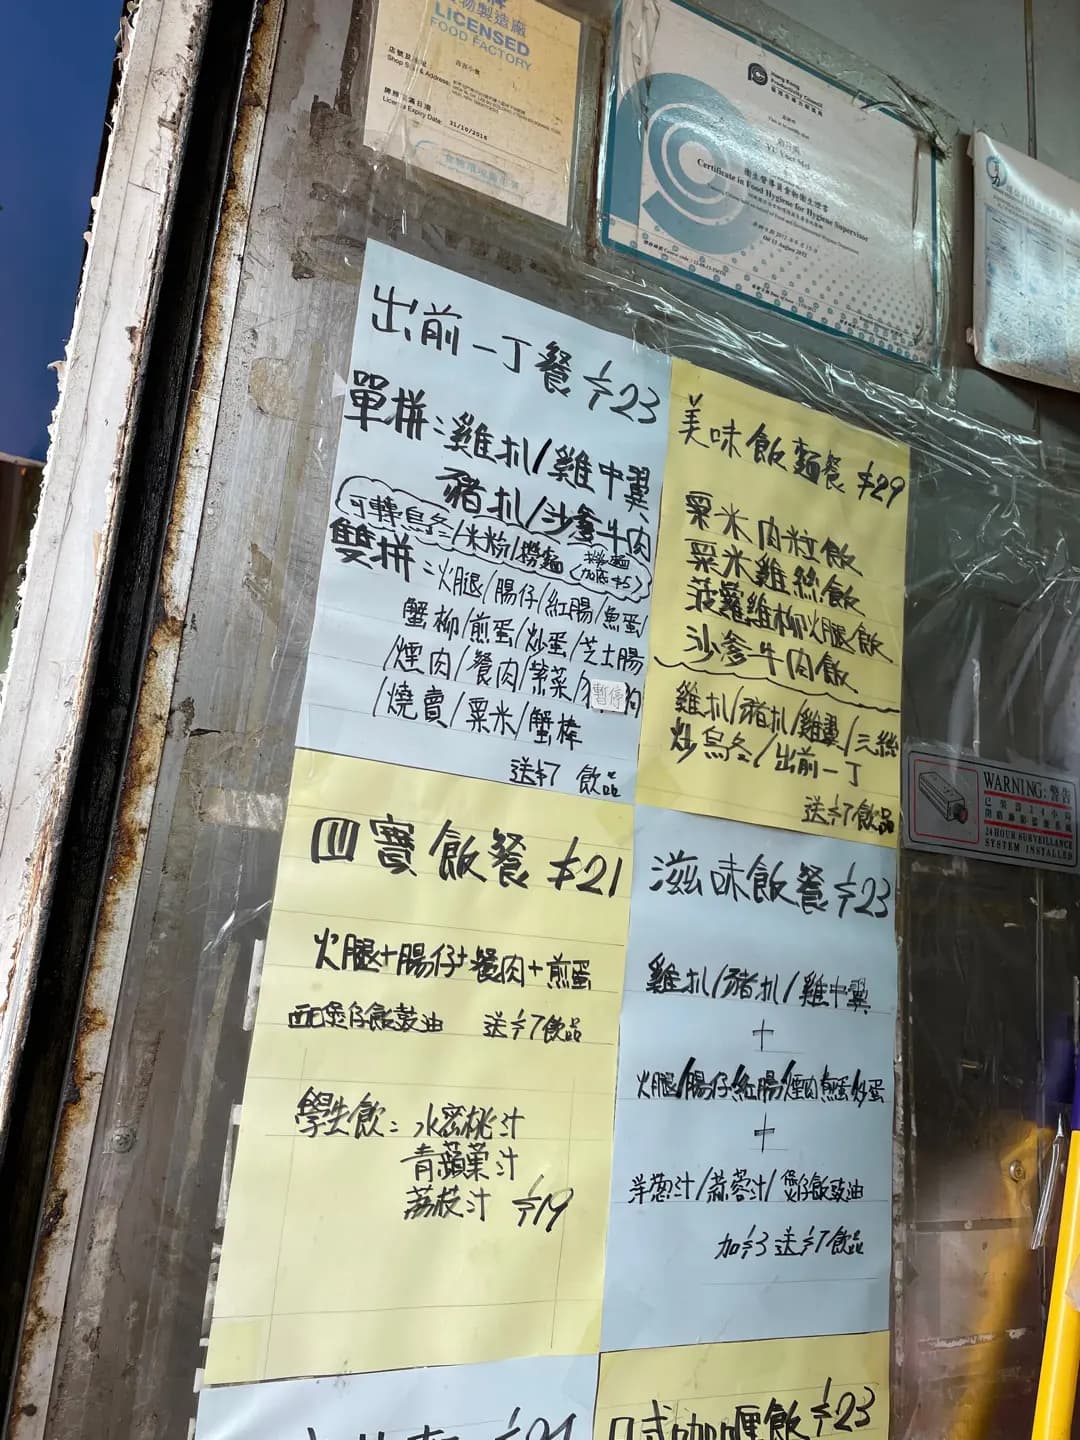 食物製造廠
LICENSED
FOOD FACTORY
Shop Sign & Address:
牌照屆滿日期
Licence Expiry Date: 31/10/2016
Hong Kong
Productivity Council
香港生產力促進局
衞生督導員食物衞生證書
Certificate in Food Hygiene for Hygiene Supervisor
出前一丁餐 $23
單拼：雞扒/雞中翼
豬扒/沙爹牛肉
(可轉烏冬/米粉/撈麵 (撈麵加底+5))
雙拼：火腿/腸仔/紅腸/魚蛋/
蟹柳/煎蛋/炒蛋/芝士腸
/煙肉/餐肉/紫菜/
暫停
/燒賣/粟米/蟹棒
送$7 飲品
美味飯麵餐 $29
粟米肉粒飯
粟米雞絲飯
菠蘿雞柳火腿飯
沙爹牛肉飯
雞扒/豬扒/雞翼/三絲
炒烏冬/出前一丁
送$7飲品
四寶飯餐 $21
火腿+腸仔+餐肉+煎蛋
配煲仔飯豉油 送$7飲品
學生飲：水蜜桃汁
青蘋菓汁
荔枝汁 $19
滋味飯餐 $23
雞扒/豬扒/雞中翼
+
火腿/腸仔/紅腸/煙肉/煎蛋/炒蛋
+
洋葱汁/蒜蓉汁/煲仔飯豉油
加$3送$7飲品
日式咖喱飯 $23
WARNING: 警告
已裝設24小時
閉路錄影監察系統
24 HOUR SURVEILLANCE
SYSTEM INSTALLED